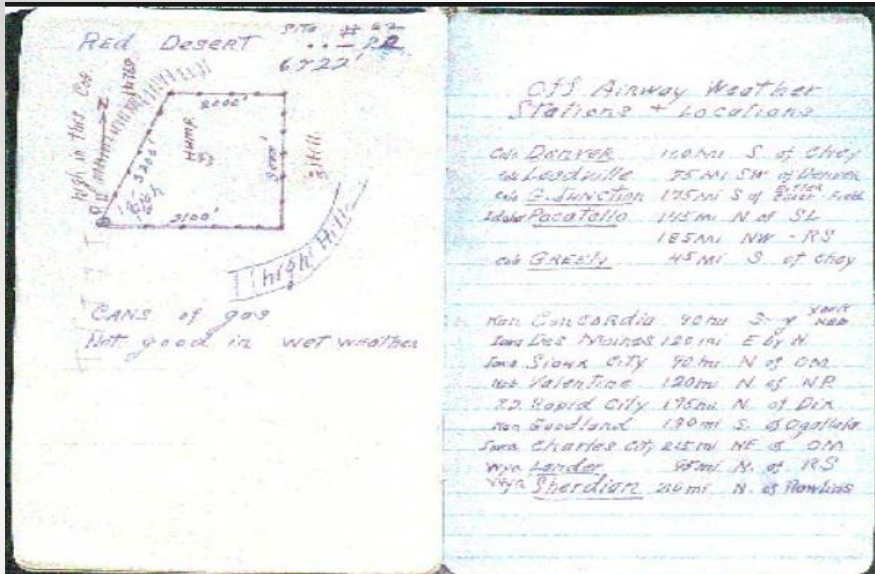 RED DESERT
SITE # 62
6722'
high in this Cor.
2000'
3200'
HUMP
3000'
Hill
3100'
high Hill
CANS of gas
Not good in wet weather
Off Airway Weather
Stations + Locations
Colo DENVER 100 mi S of Chey
Colo Leadville 75 mi SW of Denver
Colo G. JUNCTION 175 mi S of
Idaho Pocatello 145 mi N of SL
185 mi NW - RS
Colo GREELY 45 mi S of Chey
Kan CONCORDIA 90 mi S of YORK NEB
Iowa Des Moines 120 mi E by N.
Iowa Sioux City 90 mi N of OM
Neb Valentine 120 mi N of N.P.
S.D. Rapid City 175 mi N. of
Kan Goodland 130 mi S. of Ogallala
Iowa Charles City 215 mi NE of OM
Wyo Lander 95 mi N. of RS
Wyo Sherdian 210 mi N. of Rawlins